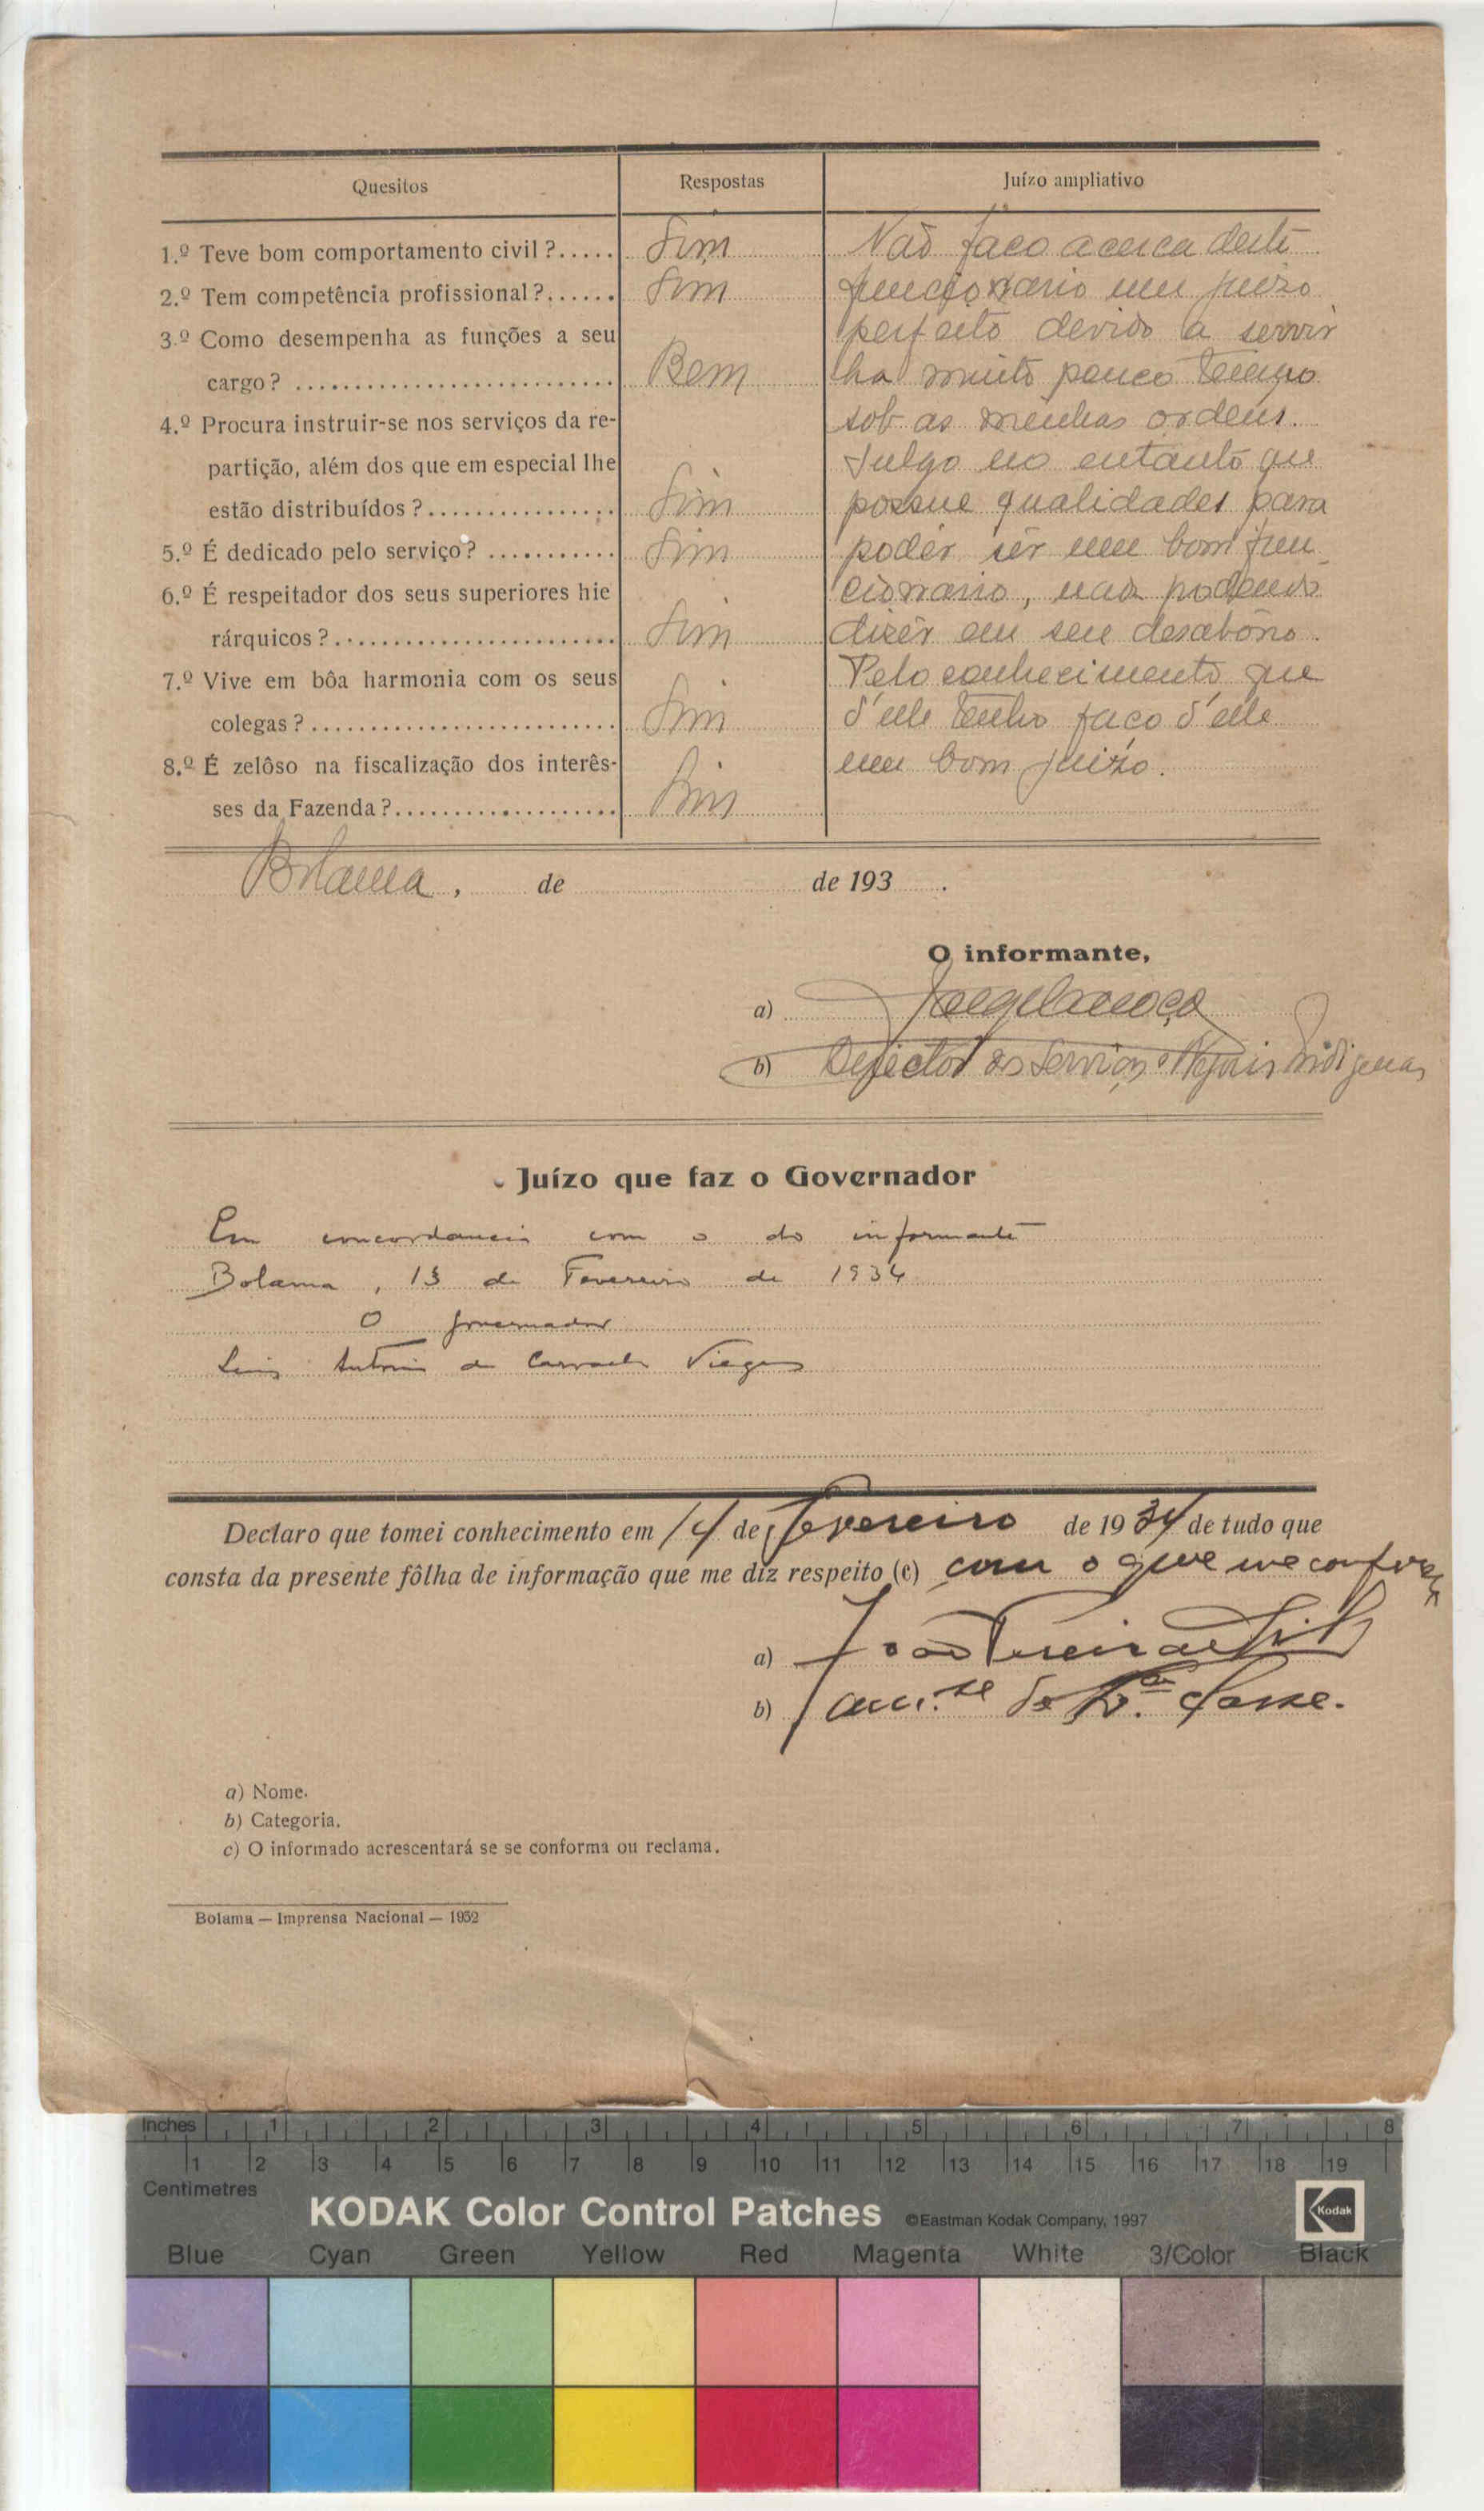 Quesitos
Respostas
Juízo ampliativo
1.º Teve bom comportamento civil ?..... Sim
2.º Tem competência profissional ?...... Sim
3.º Como desempenha as funções a seu
cargo ? ........................... Bem
4.º Procura instruir-se nos serviços da re-
partição, além dos que em especial lhe
estão distribuídos ?................ Sim
5.º É dedicado pelo serviço ? ........... Sim
6.º É respeitador dos seus superiores hie
rárquicos ?........................ Sim
7.º Vive em bôa harmonia com os seus
colegas ?.......................... Sim
8.º É zelôso na fiscalização dos interês-
ses da Fazenda ?................... Sim
Não faco acerca deste
funcionario um juizo
perfeito devido a servir
ha muito pouco tempo
sob as minhas ordens.
Julgo no entanto que
possue qualidades para
poder ser um bom fun
cionario, não podendo
dizêr em seu desabôno.
Pelo conhecimento que
d'ele tenho faco d'ele
um bom juizo.
Bolama, de de 193 .
O informante,
a)
b) Director dos Serviços e Negocios Indigenas
Juízo que faz o Governador
Em concordancia com o do informante
Bolama, 13 de Fevereiro de 1934
O governador
Luis Antonio de Carvalho Viegas
Declaro que tomei conhecimento em 14 de fevereiro de 1934 de tudo que
consta da presente fôlha de informação que me diz respeito (c) com o que me conformo
a) João Silva
b) de 2.ª classe.
a) Nome.
b) Categoria.
c) O informado acrescentará se se conforma ou reclama.
Bolama — Imprensa Nacional — 1932
Inches 1 2 3 4 5 6 7 8
1 2 3 4 5 6 7 8 9 10 11 12 13 14 15 16 17 18 19
Centimetres
KODAK Color Control Patches ©Eastman Kodak Company, 1997 Kodak
Blue Cyan Green Yellow Red Magenta White 3/Color Black